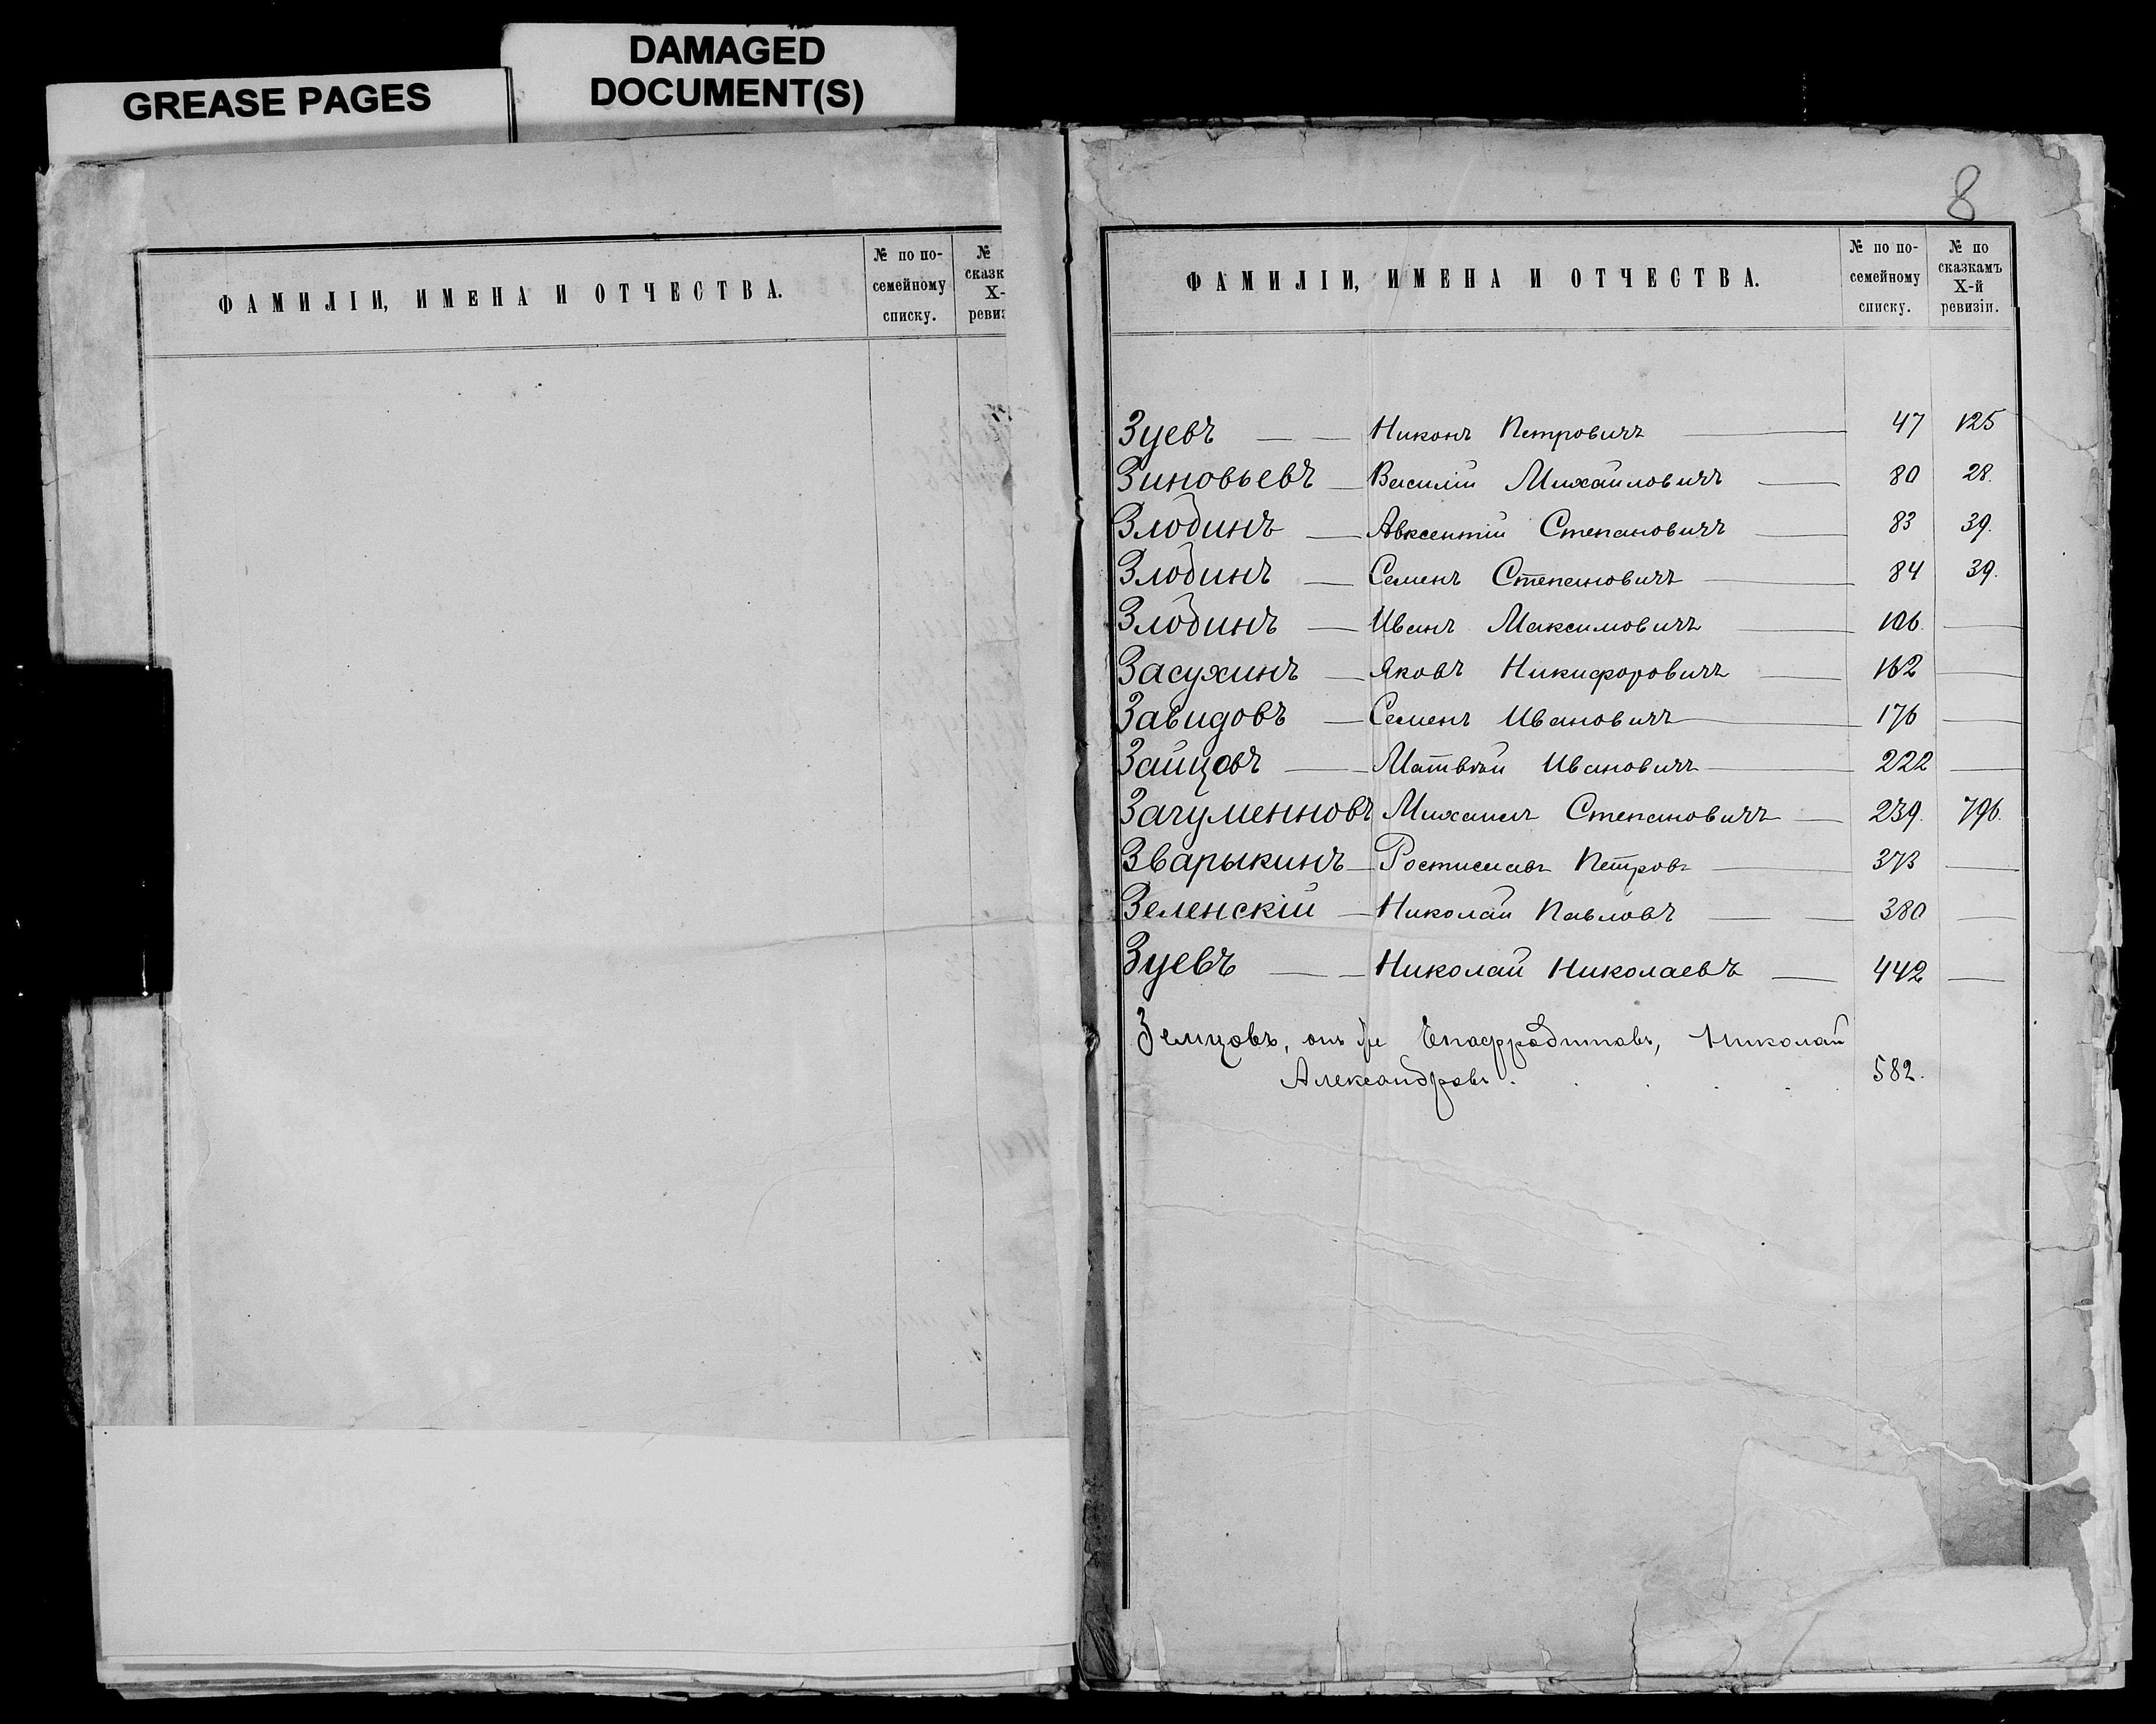 DAMAGED
DOCUMENT(S)
GREASE PAGES
ФАМИЛІИ, ИМЕНА И ОТЧЕСТВА.
№ по по-
семейному
списку.
№
сказк
X-
ревиз
8
ФАМИЛІИ, ИМЕНА И ОТЧЕСТВА.
№ по по-
семейному
списку.
№ по
сказкамъ
X-й
ревизіи.
Зуевъ — — Никонъ Петровичъ — 47 125
Зиновьевъ — Василій Михайловичъ — 80 28.
Злобинъ — Авксентій Степановичъ — 83 39.
Злобинъ — Семенъ Степановичъ — 84 39.
Злобинъ — Иванъ Максимовичъ — 106. —
Засухинъ — Яковъ Никифоровичъ — 162 —
Завидовъ — Семенъ Ивановичъ — 176 —
Зайцовъ — Матвѣй Ивановичъ — 222 —
Загуменновъ Михаилъ Степановичъ — 239. 796.
Зварыкинъ — Ростиславъ Петровъ — 373 —
Зеленскій — Николай Павловъ — 380 —
Зуевъ — — Николай Николаевъ — 442 —
Земцовъ, онъ же Епафродитовъ, Николай
Александровъ . . . . . 582.